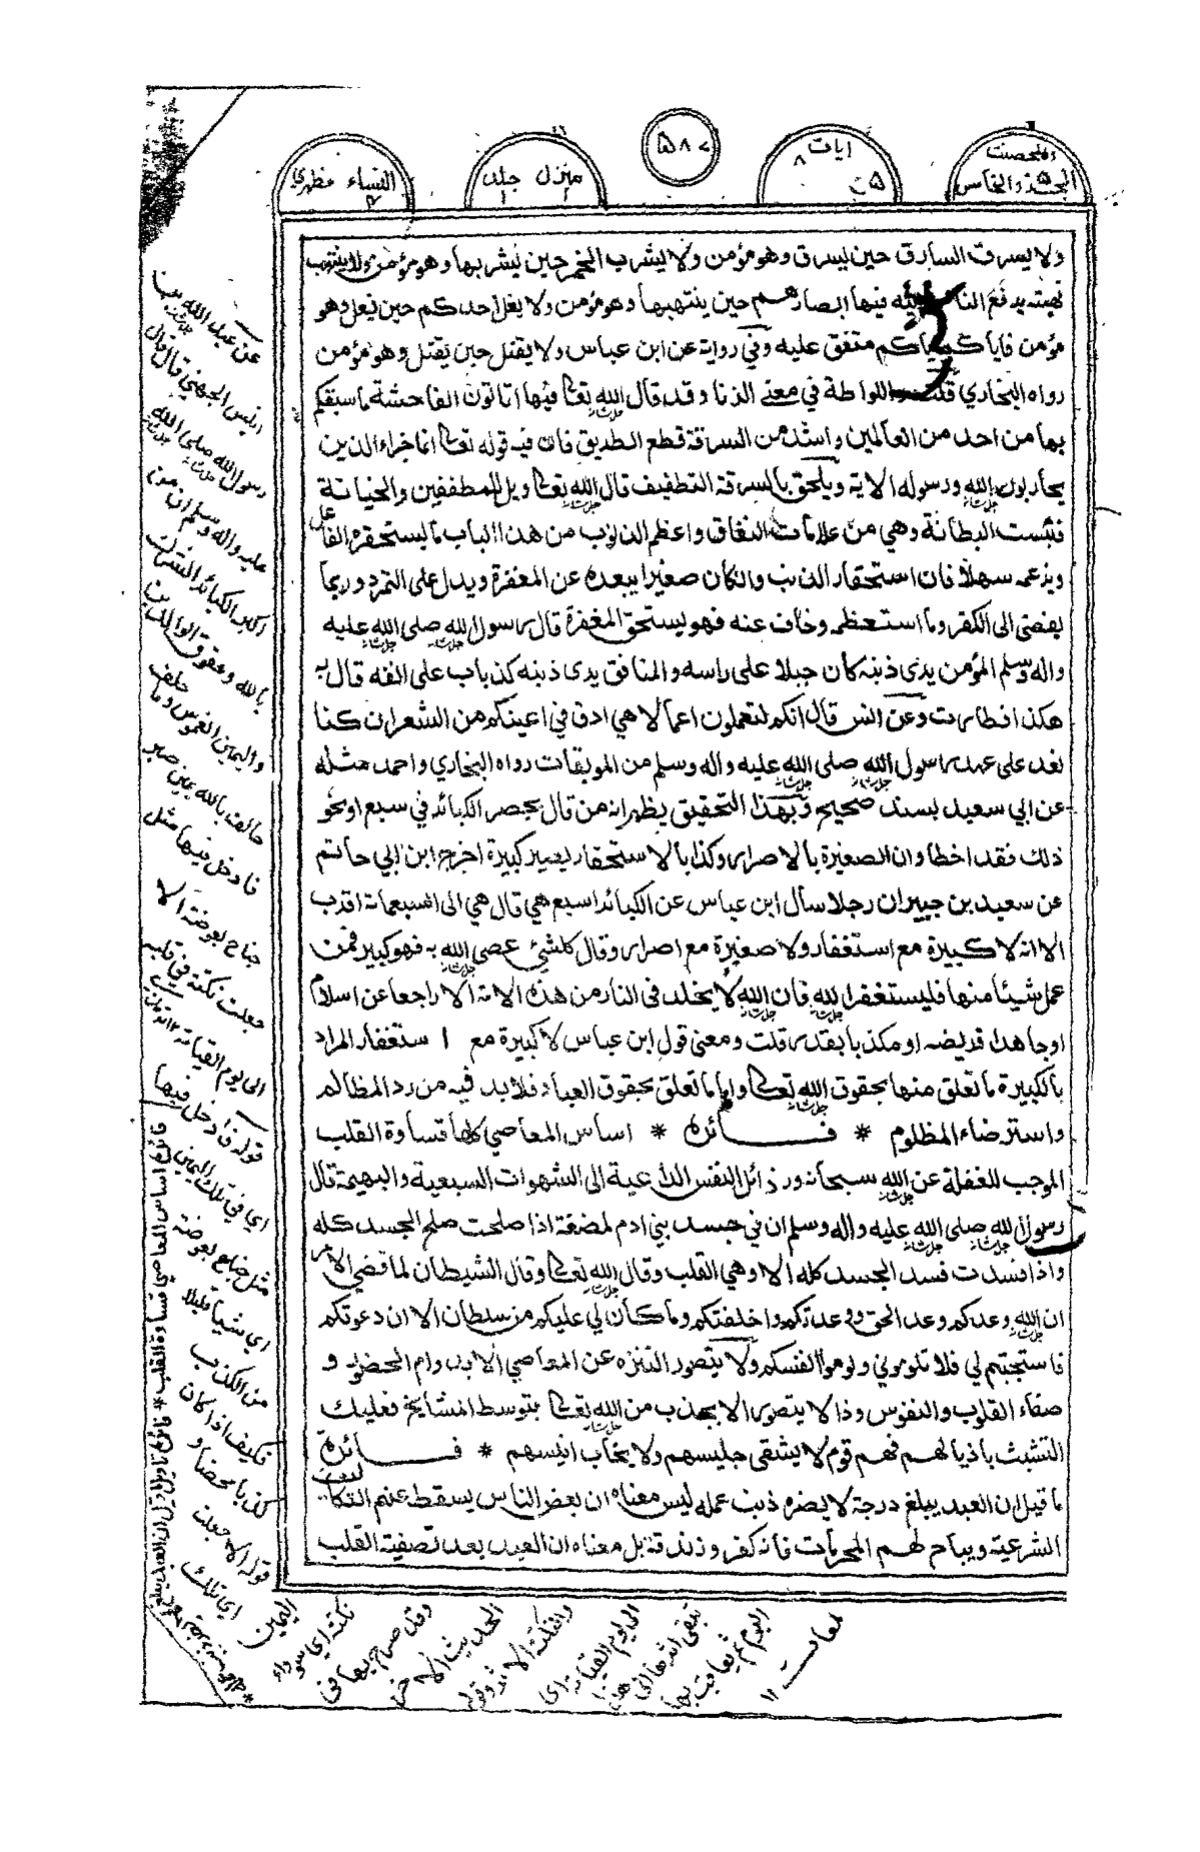 والمحصنت
الجزء الخامس
ايات ٨
ن ٥
٥٨٧
منزل جلد
١ ١
النساء مظهري
٤
ولا يسرق السارق حين يسرق وهو مؤمن ولا يشرب الخمر حين يشربها وهو مؤمن ولا ينتهب
نهبته يرفع الناس اليه فيها ابصارهم حين ينتهبها وهو مؤمن ولا يغل احدكم حين يغل وهو
مؤمن فاياكم اياكم متفق عليه وفي رواية عن ابن عباس ولا يقتل حين يقتل وهو مؤمن
رواه البخاري قلت اللواطة في معنى الزنا وقد قال الله تعالى فيها اتاتون الفاحشة ما سبقكم
بها من احد من العالمين واشد من السرقة قطع الطريق فان فيه قوله تعالى انما جزاء الذين
يحاربون الله ورسوله الاية ويلحق بالسرقة التطفيف قال الله تعالى ويل للمطففين والخيانة
فبئست البطانة وهي من علامات النفاق واعظم الذنوب من هذا الباب ما يستحقره الفاعل
ويزعمه سهلا فان استحقار الذنب وان كان صغيرا يبعده عن المغفرة ويدل على التمرد وربما
يفضي الى الكفر وما استعظمه وخاف عنه فهو يستحق المغفرة قال رسول الله صلى الله عليه
واله وسلم المؤمن يرى ذنبه كان جبلا على راسه والمنافق يرى ذنبه كذباب على انفه قال به
هكذا فطارت وعن انس قال انكم لتعملون اعمالا هي ادق في اعينكم من الشعر ان كنا
لنعد على عهد رسول الله صلى الله عليه واله وسلم من الموبقات رواه البخاري واحمد مثله
عن ابي سعيد بسند صحيح وبهذا التحقيق يظهر انه من قال بحصر الكبائر في سبع او نحو
ذلك فقد اخطا وان الصغيرة بالاصرار وكذا بالاستحقار يصير كبيرة اخرج ابن ابي حاتم
عن سعيد بن جبير ان رجلا سال ابن عباس عن الكبائر اسبع هي قال هي الى السبعمائة اقرب
الا انه لا كبيرة مع استغفار ولا صغيرة مع اصرار وقال كل شيء عصي الله به فهو كبير فمن
عمل شيئا منها فليستغفر الله فان الله لا يخلد في النار من هذه الامة الا راجعا عن اسلام
او جاهدا فريضة او مكذبا بقدر قلت ومعنى قول ابن عباس لا كبيرة مع استغفار المراد
بالكبيرة ما تعلق منها بحقوق الله تعالى واما ما تعلق بحقوق العباد فلا بد فيه من رد المظالم
واسترضاء المظلوم * فائدة * اساس المعاصي كلها قساوة القلب
الموجب للغفلة عن الله سبحانه ورذائل النفس الداعية الى الشهوات السبعية والبهيمة قال
رسول الله صلى الله عليه واله وسلم ان في جسد بني ادم لمضغة اذا صلحت صلح الجسد كله
واذا فسدت فسد الجسد كله الا وهي القلب وقال الله تعالى وقال الشيطان لما قضي الامر
ان الله وعدكم وعد الحق ووعدتكم واخلفتكم وما كان لي عليكم من سلطان الا ان دعوتكم
فاستجبتم لي فلا تلوموني ولوموا انفسكم ولا يتصور التنزه عن المعاصي الا بدوام الحضور و
صفاء القلوب والنفوس وذا لا يتصور الا بجذب من الله تعالى بتوسط المشايخ فعليك
التشبث باذيالهم فهم قوم لا يشقى جليسهم ولا يخاب انيسهم * فائدة
ما قيل ان العبد يبلغ درجة لا يضره ذنب عمله ليس معناه ان بعض الناس يسقط عنهم التكاليف
الشرعية ويباح لهم المحرمات فانه كفر وزندقة بل معناه ان العبد بعد تصفية القلب
عن عبد الله بن
انيس الجهني قال قال
رسول الله صلى الله
عليه واله وسلم ان من
اكبر الكبائر الشرك
بالله وعقوق الوالدين
واليمين الغموس وما حلف
حالف بالله يمين صبر
فادخل فيها مثل
جناح بعوضة الا
جعلت نكتة في قلبه
الى يوم القيامة
قوله فادخل فيها
اي في تلك اليمين
مثل جناح بعوضة
اي شيئا قليلا
من الكذب
فكيف اذا كان
كذبا محضا و
قوله الا جعلت
اي تلك
اليمين
نكتة اي سوداء
وقد صرح بها في
الحديث الاخر
الى يوم القيامة اي
تبقى اثرها الى هذا
اليوم ثم يعاقب بها